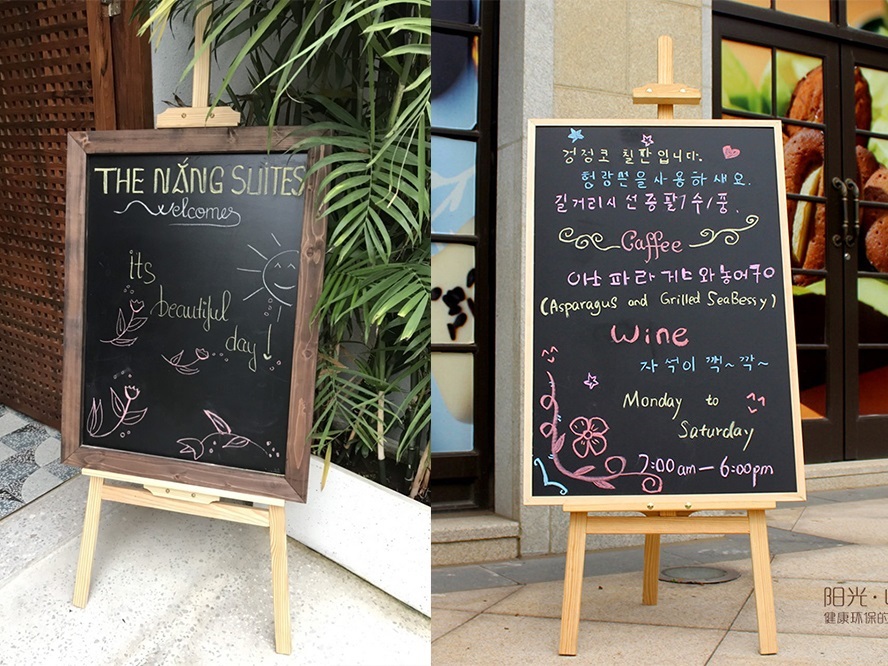 THE NẮNG SUITES
welcomes
its
beautiful
day!
걱정코 칠판입니다.
형광면을사용하새요.
길거리시선종팔1수1풍.
Caffee
아스파라거스와농어구이
(Asparagus and Grilled SeaBessy)
Wine
자석이 찍~깍~
Monday to
Saturday
7:00am—6:00pm
阳光·
健康环保的